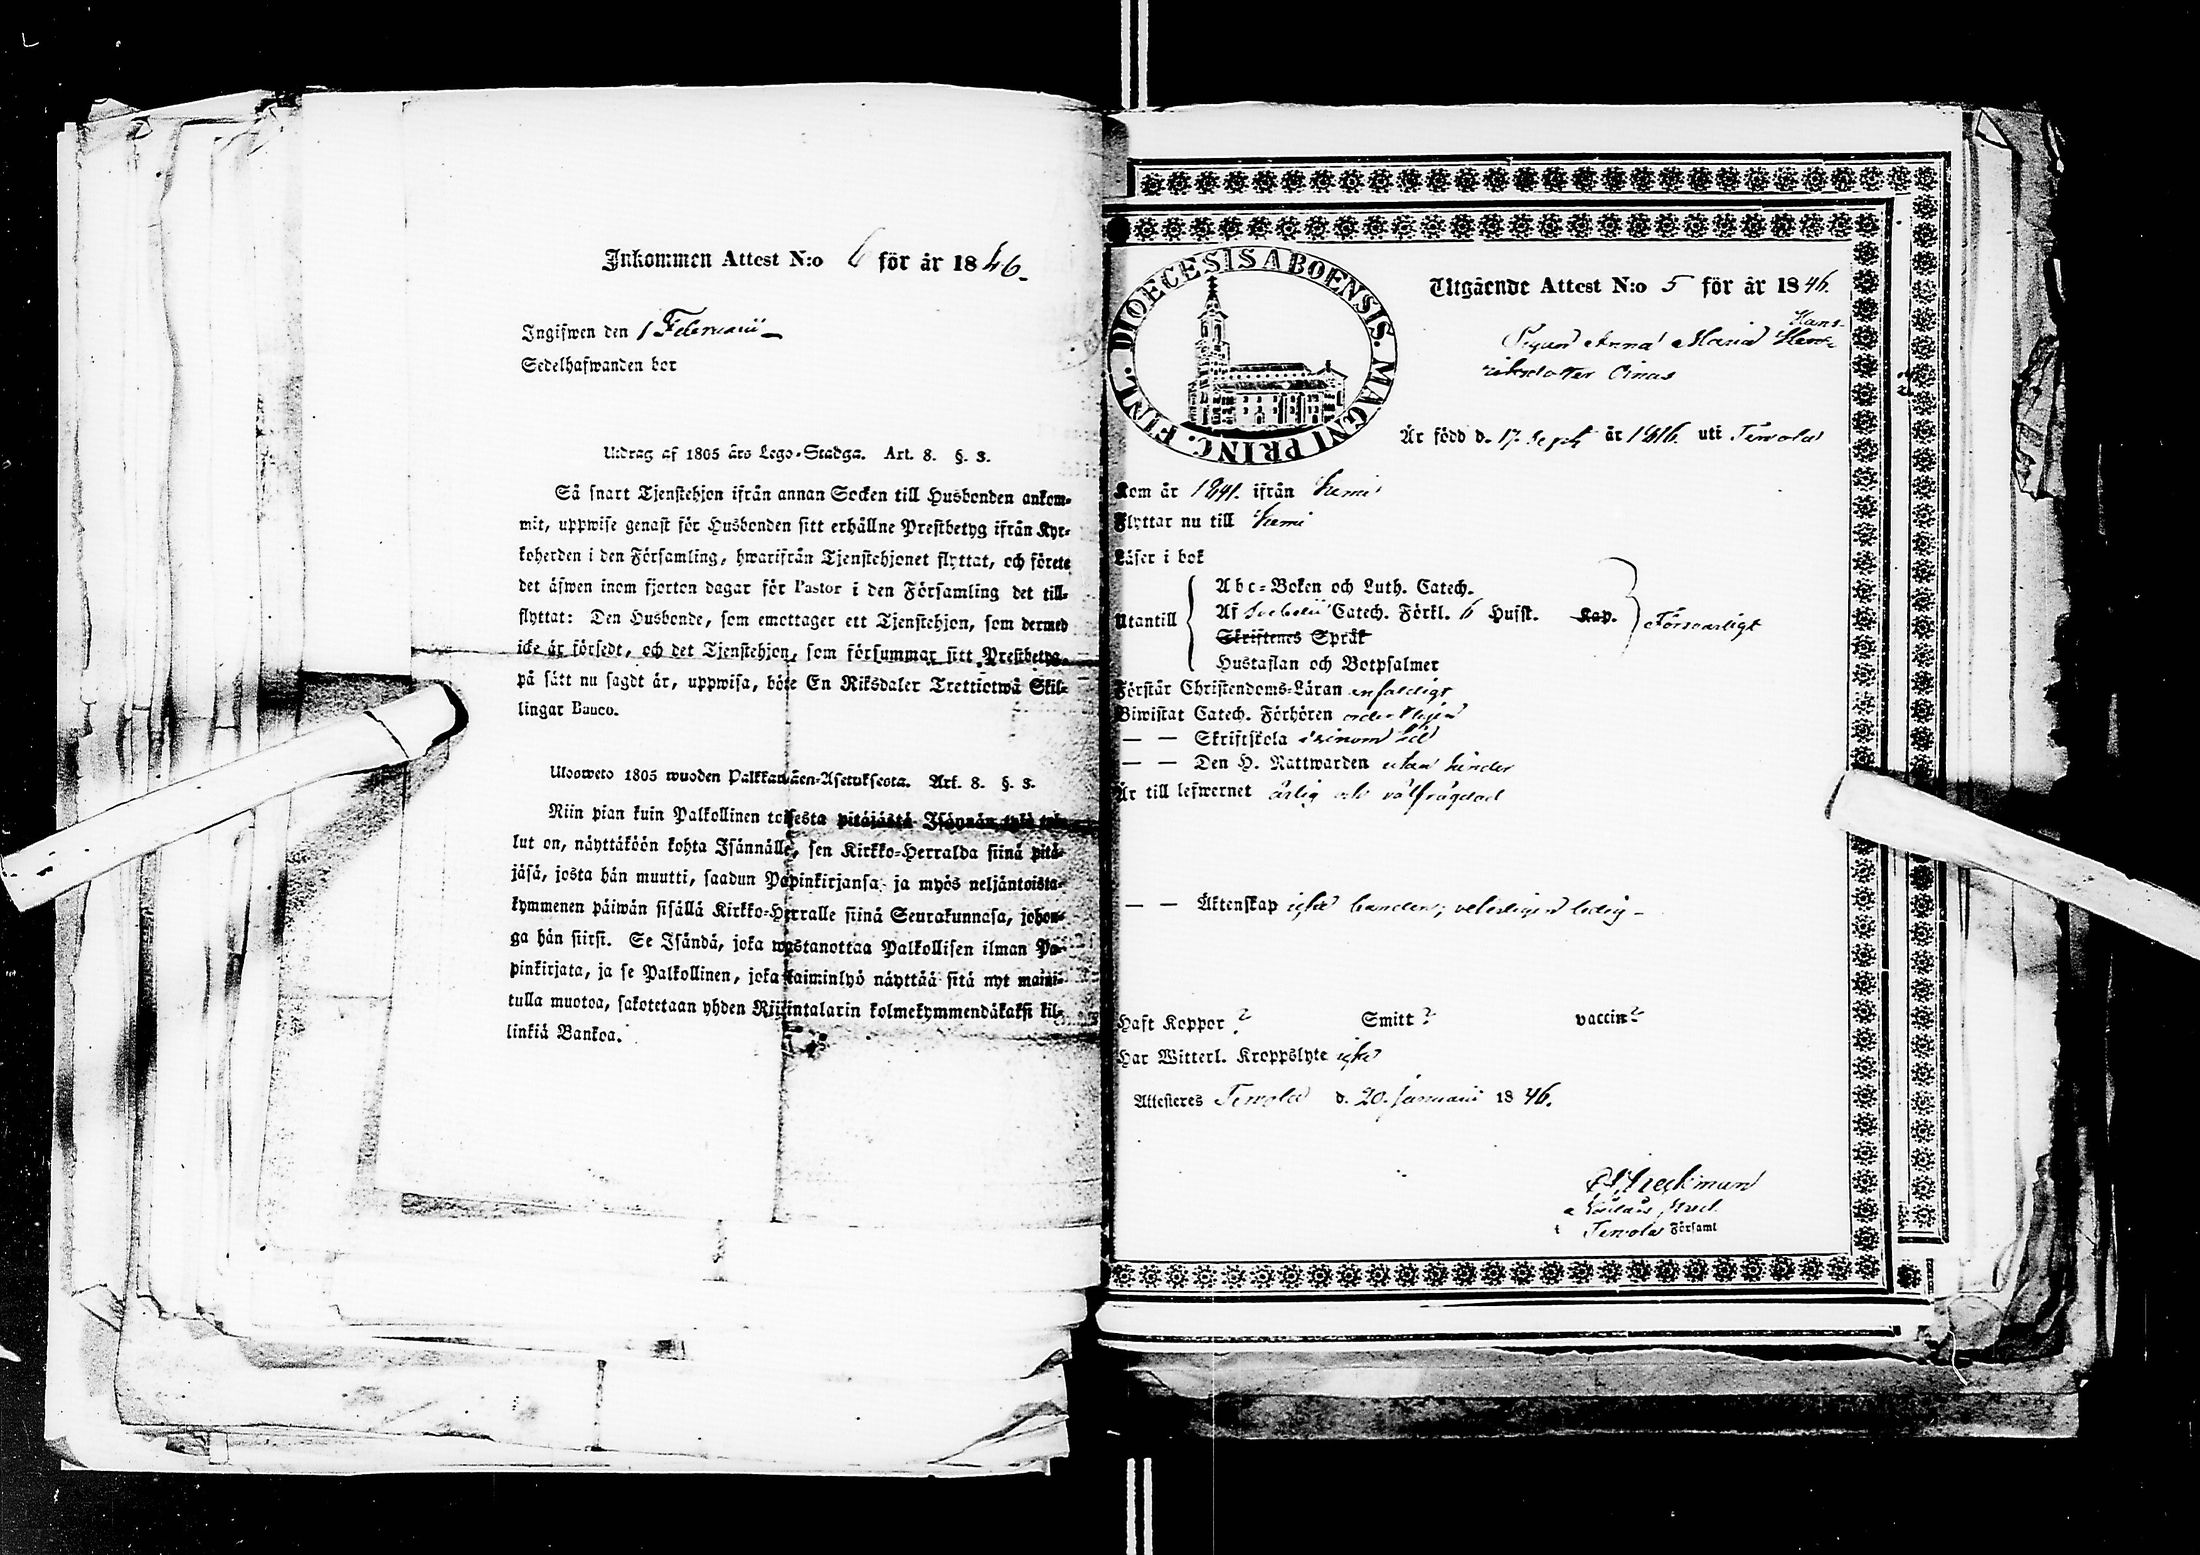 Inkommen Attest N:o 6 för år 1846.
Ingifwen den 1 Februarii
Sedelhafwanden bor
Utdrag af 1805 års Lego-Stadga. Art. 8. §. 3.
Så snart Tjenstehjon ifrån annan Socken till Husbonden ankom-
mit, uppwise genast för Husbonden sitt erhållne Prestbetyg ifrån Kyr-
koherden i den Församling, hwarifrån Tjenstehjonet flyttat, och förete
det äfwen inom fjorton dagar för Pastor i den Församling det till-
flyttat: Den Husbonde, som emottager ett Tjenstehjon, som dermed
icke är försedt, och det Tjenstehjon, som försummar sitt Prestbetyg,
på sätt nu sagdt är, uppwisa, böte En Riksdaler Trettiotwå Skil-
lingar Banco.
Ulosweto 1805 wuoden Palkkawäen-Asetuksesta. Art. 8. §. 3.
Niin pian kuin Palkollinen toisesta pitäjästä Isännän tykö tul-
lut on, näyttäköön kohta Isännälle, sen Kirkko-Herralda siinä pitä-
jäsä, josta hän muutti, saadun Papinkirjansa, ja myös neljäntoista-
kymmenen päiwän sisällä Kirkko-Herralle siinä Seurakunnasa, johon-
ga hän siirsi. Se Isändä, joka wastanottaa Palkollisen ilman Pa-
pinkirjata, ja se Palkollinen, joka laiminlyö näyttää sitä nyt maini-
tulla muotoa, sakotetaan yhden Riikintalarin kolmekymmendäkaksi kil-
linkiä Bankoa.
DIOECESIS ABOENSIS. MAGNI PRINC. FINL.
Utgående Attest N:o 5 för år 1846.
Hans-
Pigan Anna Maria
dotter Oinas
Är född d. 17 Sept år 1816. uti Terwola
Kom år 1841. ifrån Kemi
Flyttar nu till Kemi
Läser i bok
Utantill
Abc-Boken och Luth. Catech.
Af Svebelii Catech. Förkl. 6 Hufst. Kap.
Skriftenes Språk
Hustaflan och Botpsalmer
Försvarligt
Förstår Christendoms-Läran enfaldigt
Biwistat Catech. Förhören ordentligen
— — Skriftskola
— — Den H. Nattwarden utan hinder
Är till lefwernet ärlig och välfrägdad
— — Äktenskap icke bunden, ledig -
Haft Koppor ? Smitt ? vaccin ?
Har Witterl. Kroppslyte icke
Attesteres Terwola d. 20 Januarii 1846.
Heckman
Terwola Församl